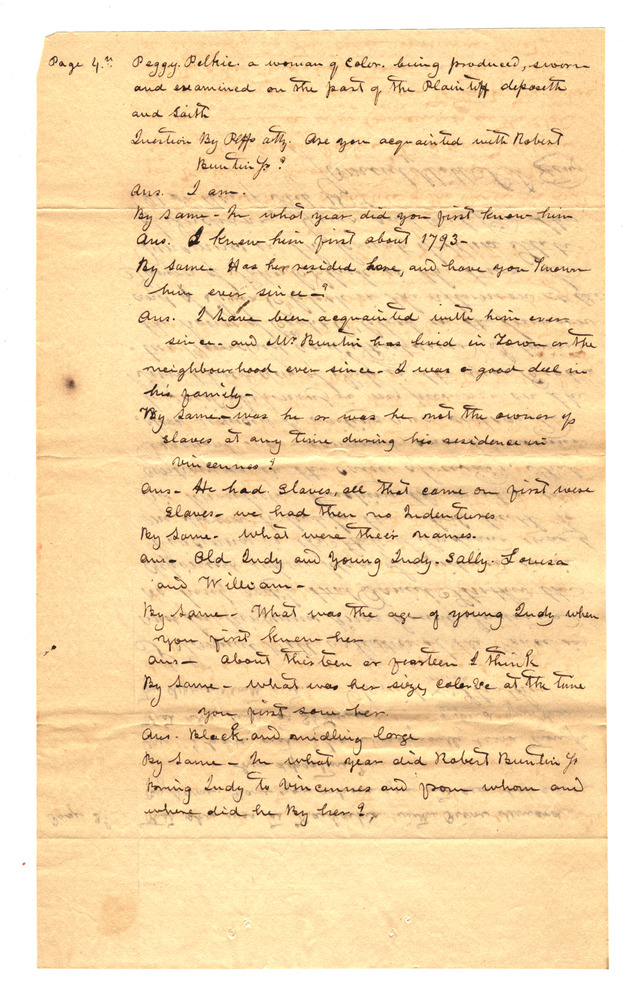 Page 4."
Peggy. Pelkie. a woman of color. being produced, sworn
and examined on the part of the Plaintiff deposeth
and Saith
Question By Plffs atty. Are you acquainted with Robert
Buntin ?
Ans. I am.
By same - In what year did you first know him
Ans. I knew him first about 1793-
By same - Has he resided here, and have you known
him ever since-?
Ans. I have been acquainted with him ever
since. and Mr Buntin has lived in Town or the
neighbourhood ever since - I was a good deel in
his family-
By same - was he or was he not the owner of
slaves at any time during his residence in
Vincennes?
Ans - He had slaves, all that came on first were
slaves - we had then no Indentures
By same - what were their names.
ans - Old Judy and Young Judy. Sally. Louisa
and William -
By same - What was the age of young Judy when
you first knew her
ans - about thirteen or fourteen I think
By same - what was her size, color &c at the time
you first saw her.
Ans. Black. and midling large
By same - In what year did Robert Buntin
Bring Judy to Vincennes and from whom and
where did he By her?